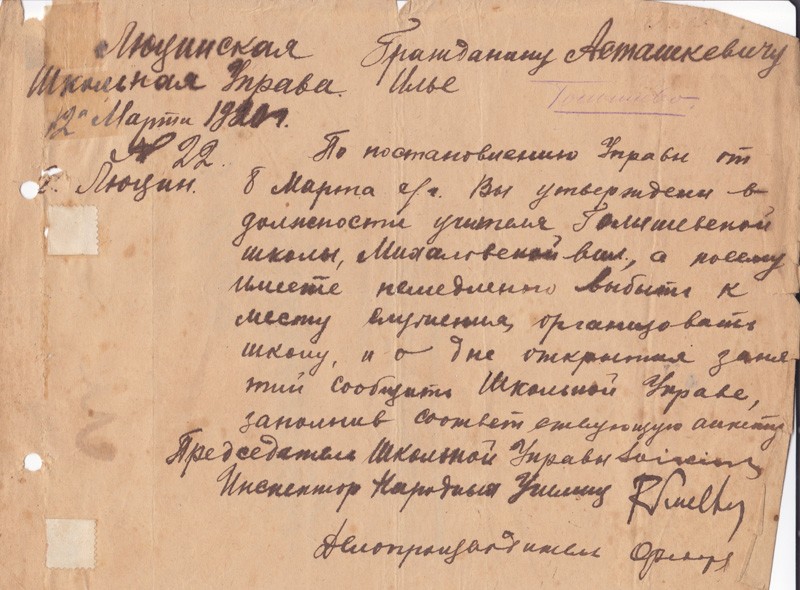 Люцинская
Школьная Управа.
12го Марта 1920 г.
№ 22.
г. Люцин.
Гражданину Асташкевичу
Илье
Голышево.
По постановлению Управы от
8 Марта с/г. Вы утверждены в
должности учителя Голышевской
школы, Михаловской вол., а посему
имеете немедленно выбыть к
месту служения, организовать
школу, и о дне открытия заня
тий сообщить Школьной Управе,
заполнив соответствующую анкету
Председатель Школьной Управы
Инспектор Народных Училищ
Делопроизводитель